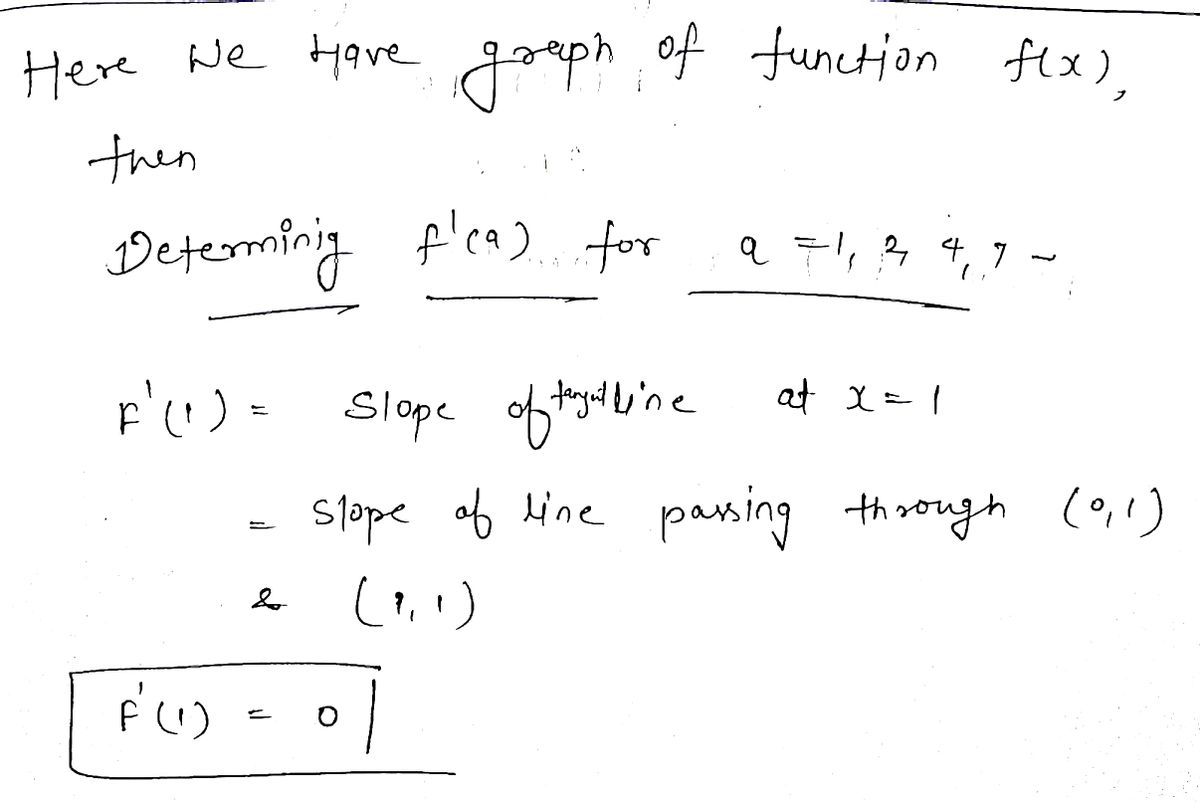 Here We Have graph of function f(x),
then
Determinig f'(a) for a = 1, 2, 4, 7 ~
F'(1) = Slope of tangent line at x = 1
= Slope of line passing through (0,1)
& (1,1)
F'(1) = 0